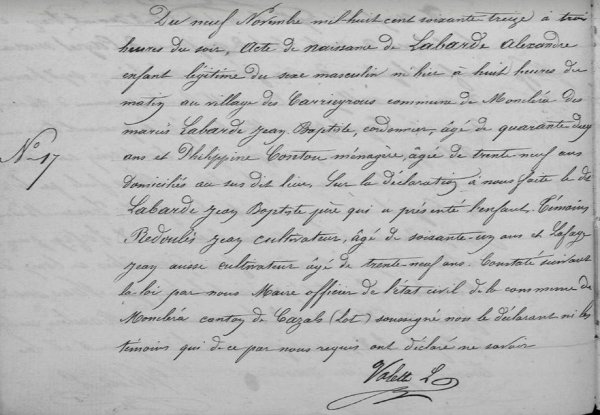 Du neuf Novembre mil huit cent soixante treize à trois
heures du soir, Acte de naissance de Labarde Alexandre
enfant légitime du sexe masculin né hier à huit heures du
matin au village des Carrieyrous commune de Moncléra des
mariés Labarde Jean Baptiste, cordonnier, âgé de quarante deux
No 17
ans et Philippine Contou ménagère, âgée de trente neuf ans
domiciliés au sus dit lieu. Sur la déclaration à nous faite le dt
Labarde Jean Baptiste père qui a présenté l'enfant. Témoins
Redoulès Jean cultivateur, âgé de soixante-un ans et Lafage
Jean aussi cultivateur âgé de trente-neuf ans. Constaté suivant
la loi par nous Maire officier de l'état civil de la commune de
Moncléra canton de Cazals (Lot) soussigné non le déclarant ni les
témoins qui de ce par nous requis ont déclaré ne savoir
Valette L